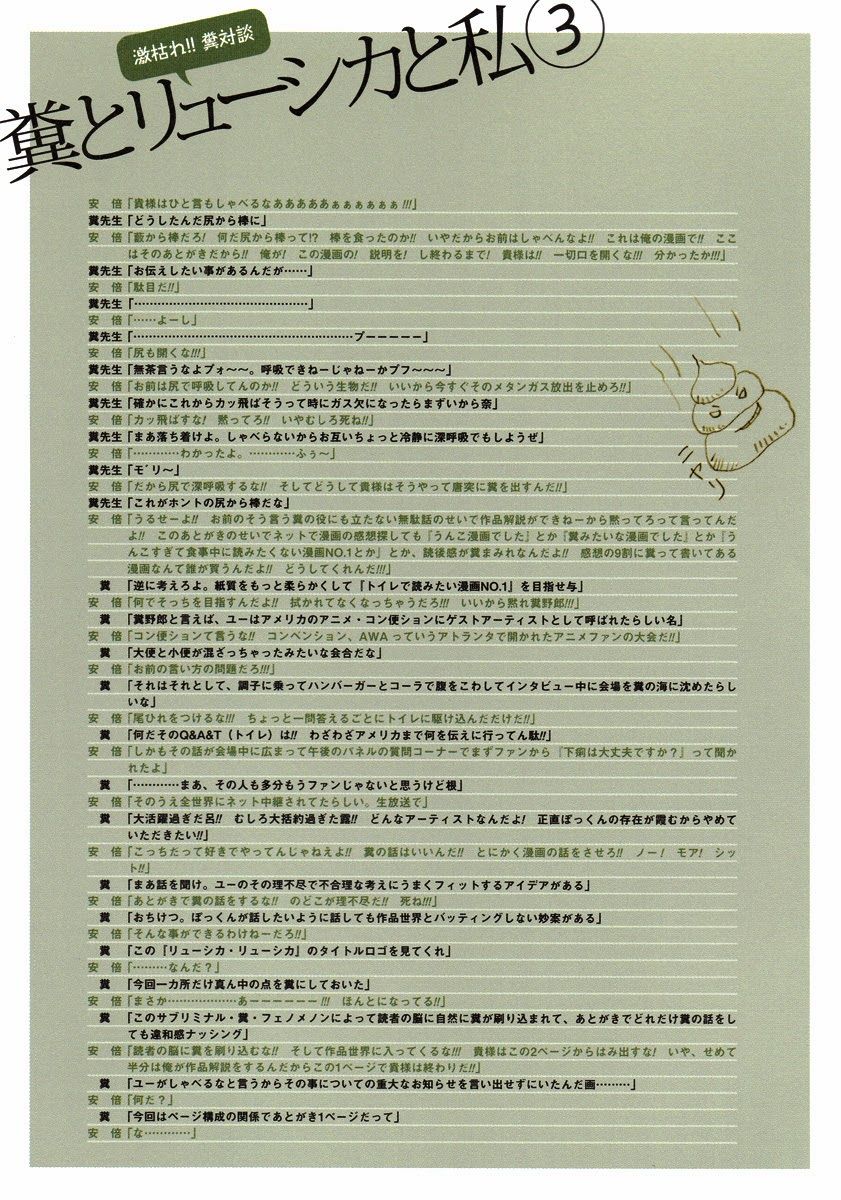 激枯れ!! 糞対談
糞とリューシカと私③
安　倍「貴様はひと言もしゃべるなあああああぁぁぁぁぁぁ!!!」
糞先生「どうしたんだ尻から棒に」
安　倍「藪から棒だろ!　何だ尻から棒って!?　棒を食ったのか!!　いやだからお前はしゃべんなよ!!　これは俺の漫画で!!　ここ
はそのあとがきだから!!　俺が!　この漫画の!　説明を!　し終わるまで!　貴様は!!　一切口を開くな!!!　分かったか!!!」
糞先生「お伝えしたい事があるんだが……」
安　倍「駄目だ!!」
糞先生「…………………………………」
安　倍「……よーし」
糞先生「…………………………………………プーーーーー」
安　倍「尻も開くな!!!」
糞先生「無茶言うなよブォ〜〜。呼吸できねーじゃねーかブフ〜〜〜」
安　倍「お前は尻で呼吸してんのか!!　どういう生物だ!!　いいから今すぐそのメタンガス放出を止めろ!!」
糞先生「確かにこれからカッ飛ばそうって時にガス欠になったらまずいから奈」
安　倍「カッ飛ばすな!　黙ってろ!!　いやむしろ死ね!!」
糞先生「まあ落ち着けよ。しゃべらないからお互いちょっと冷静に深呼吸でもしようぜ」
安　倍「…………わかったよ。…………ふぅ〜」
糞先生「モ゛リ〜」
安　倍「だから尻で深呼吸するな!!　そしてどうして貴様はそうやって唐突に糞を出すんだ!!」
糞先生「これがホントの尻から棒だな」
安　倍「うるせーよ!!　お前のそう言う糞の役にも立たない無駄話のせいで作品解説ができねーから黙ってろって言ってんだ
よ!!　このあとがきのせいでネットで漫画の感想探しても『うんこ漫画でした』とか『糞みたいな漫画でした』とか『う
んこすぎて食事中に読みたくない漫画NO.1とか』とか、読後感が糞まみれなんだよ!!　感想の9割に糞って書いてある
漫画なんて誰が買うんだよ!!　どうしてくれんだ!!!」
糞　「逆に考えろよ。紙質をもっと柔らかくして『トイレで読みたい漫画NO.1』を目指せ与」
安　倍「何でそっちを目指すんだよ!!　拭かれてなくなっちゃうだろ!!!　いいから黙れ糞野郎!!!」
糞　「糞野郎と言えば、ユーはアメリカのアニメ・コン便ションにゲストアーティストとして呼ばれたらしい名」
安　倍「コン便ションて言うな!!　コンベンション、AWAっていうアトランタで開かれたアニメファンの大会だ!!」
糞　「大便と小便が混ざっちゃったみたいな会合だな」
安　倍「お前の言い方の問題だろ!!!」
糞　「それはそれとして、調子に乗ってハンバーガーとコーラで腹をこわしてインタビュー中に会場を糞の海に沈めたらし
いな」
安　倍「尾ひれをつけるな!!!　ちょっと一問答えるごとにトイレに駆け込んだだけだ!!」
糞　「何だそのQ&A&T（トイレ）は!!　わざわざアメリカまで何を伝えに行ってん駄!!」
安　倍「しかもその話が会場中に広まって午後のパネルの質問コーナーでまずファンから『下痢は大丈夫ですか？』って聞か
れたよ」
糞　「…………まあ、その人も多分もうファンじゃないと思うけど根」
安　倍「そのうえ全世界にネット中継されてたらしい。生放送で」
糞　「大活躍過ぎだ呂!!　むしろ大括約過ぎた露!!　どんなアーティストなんだよ!　正直ぼっくんの存在が霞むからやめて
いただきたい!!」
安　倍「こっちだって好きでやってんじゃねえよ!!　糞の話はいいんだ!!　とにかく漫画の話をさせろ!!　ノー!　モア!　シッ
ト!!」
糞　「まあ話を聞け。ユーのその理不尽で不合理な考えにうまくフィットするアイデアがある」
安　倍「あとがきで糞の話をするな!!　のどこが理不尽だ!!　死ね!!!」
糞　「おちけつ。ぼっくんが話したいように話しても作品世界とバッティングしない妙案がある」
安　倍「そんな事ができるわけねーだろ!!」
糞　「この『リューシカ・リューシカ』のタイトルロゴを見てくれ」
安　倍「………なんだ？」
糞　「今回一カ所だけ真ん中の点を糞にしておいた」
安　倍「まさか………………あーーーーーー!!!　ほんとになってる!!」
糞　「このサブリミナル・糞・フェノメノンによって読者の脳に自然に糞が刷り込まれて、あとがきでどれだけ糞の話をし
ても違和感ナッシング」
安　倍「読者の脳に糞を刷り込むな!!　そして作品世界に入ってくるな!!!　貴様はこの2ページからはみ出すな!　いや、せめて
半分は俺が作品解説をするんだからこの1ページで貴様は終わりだ!!」
糞　「ユーがしゃべるなと言うからその事についての重大なお知らせを言い出せずにいたんだ画………」
安　倍「何だ？」
糞　「今回はページ構成の関係であとがき1ページだって」
安　倍「な…………」
ニヤリ